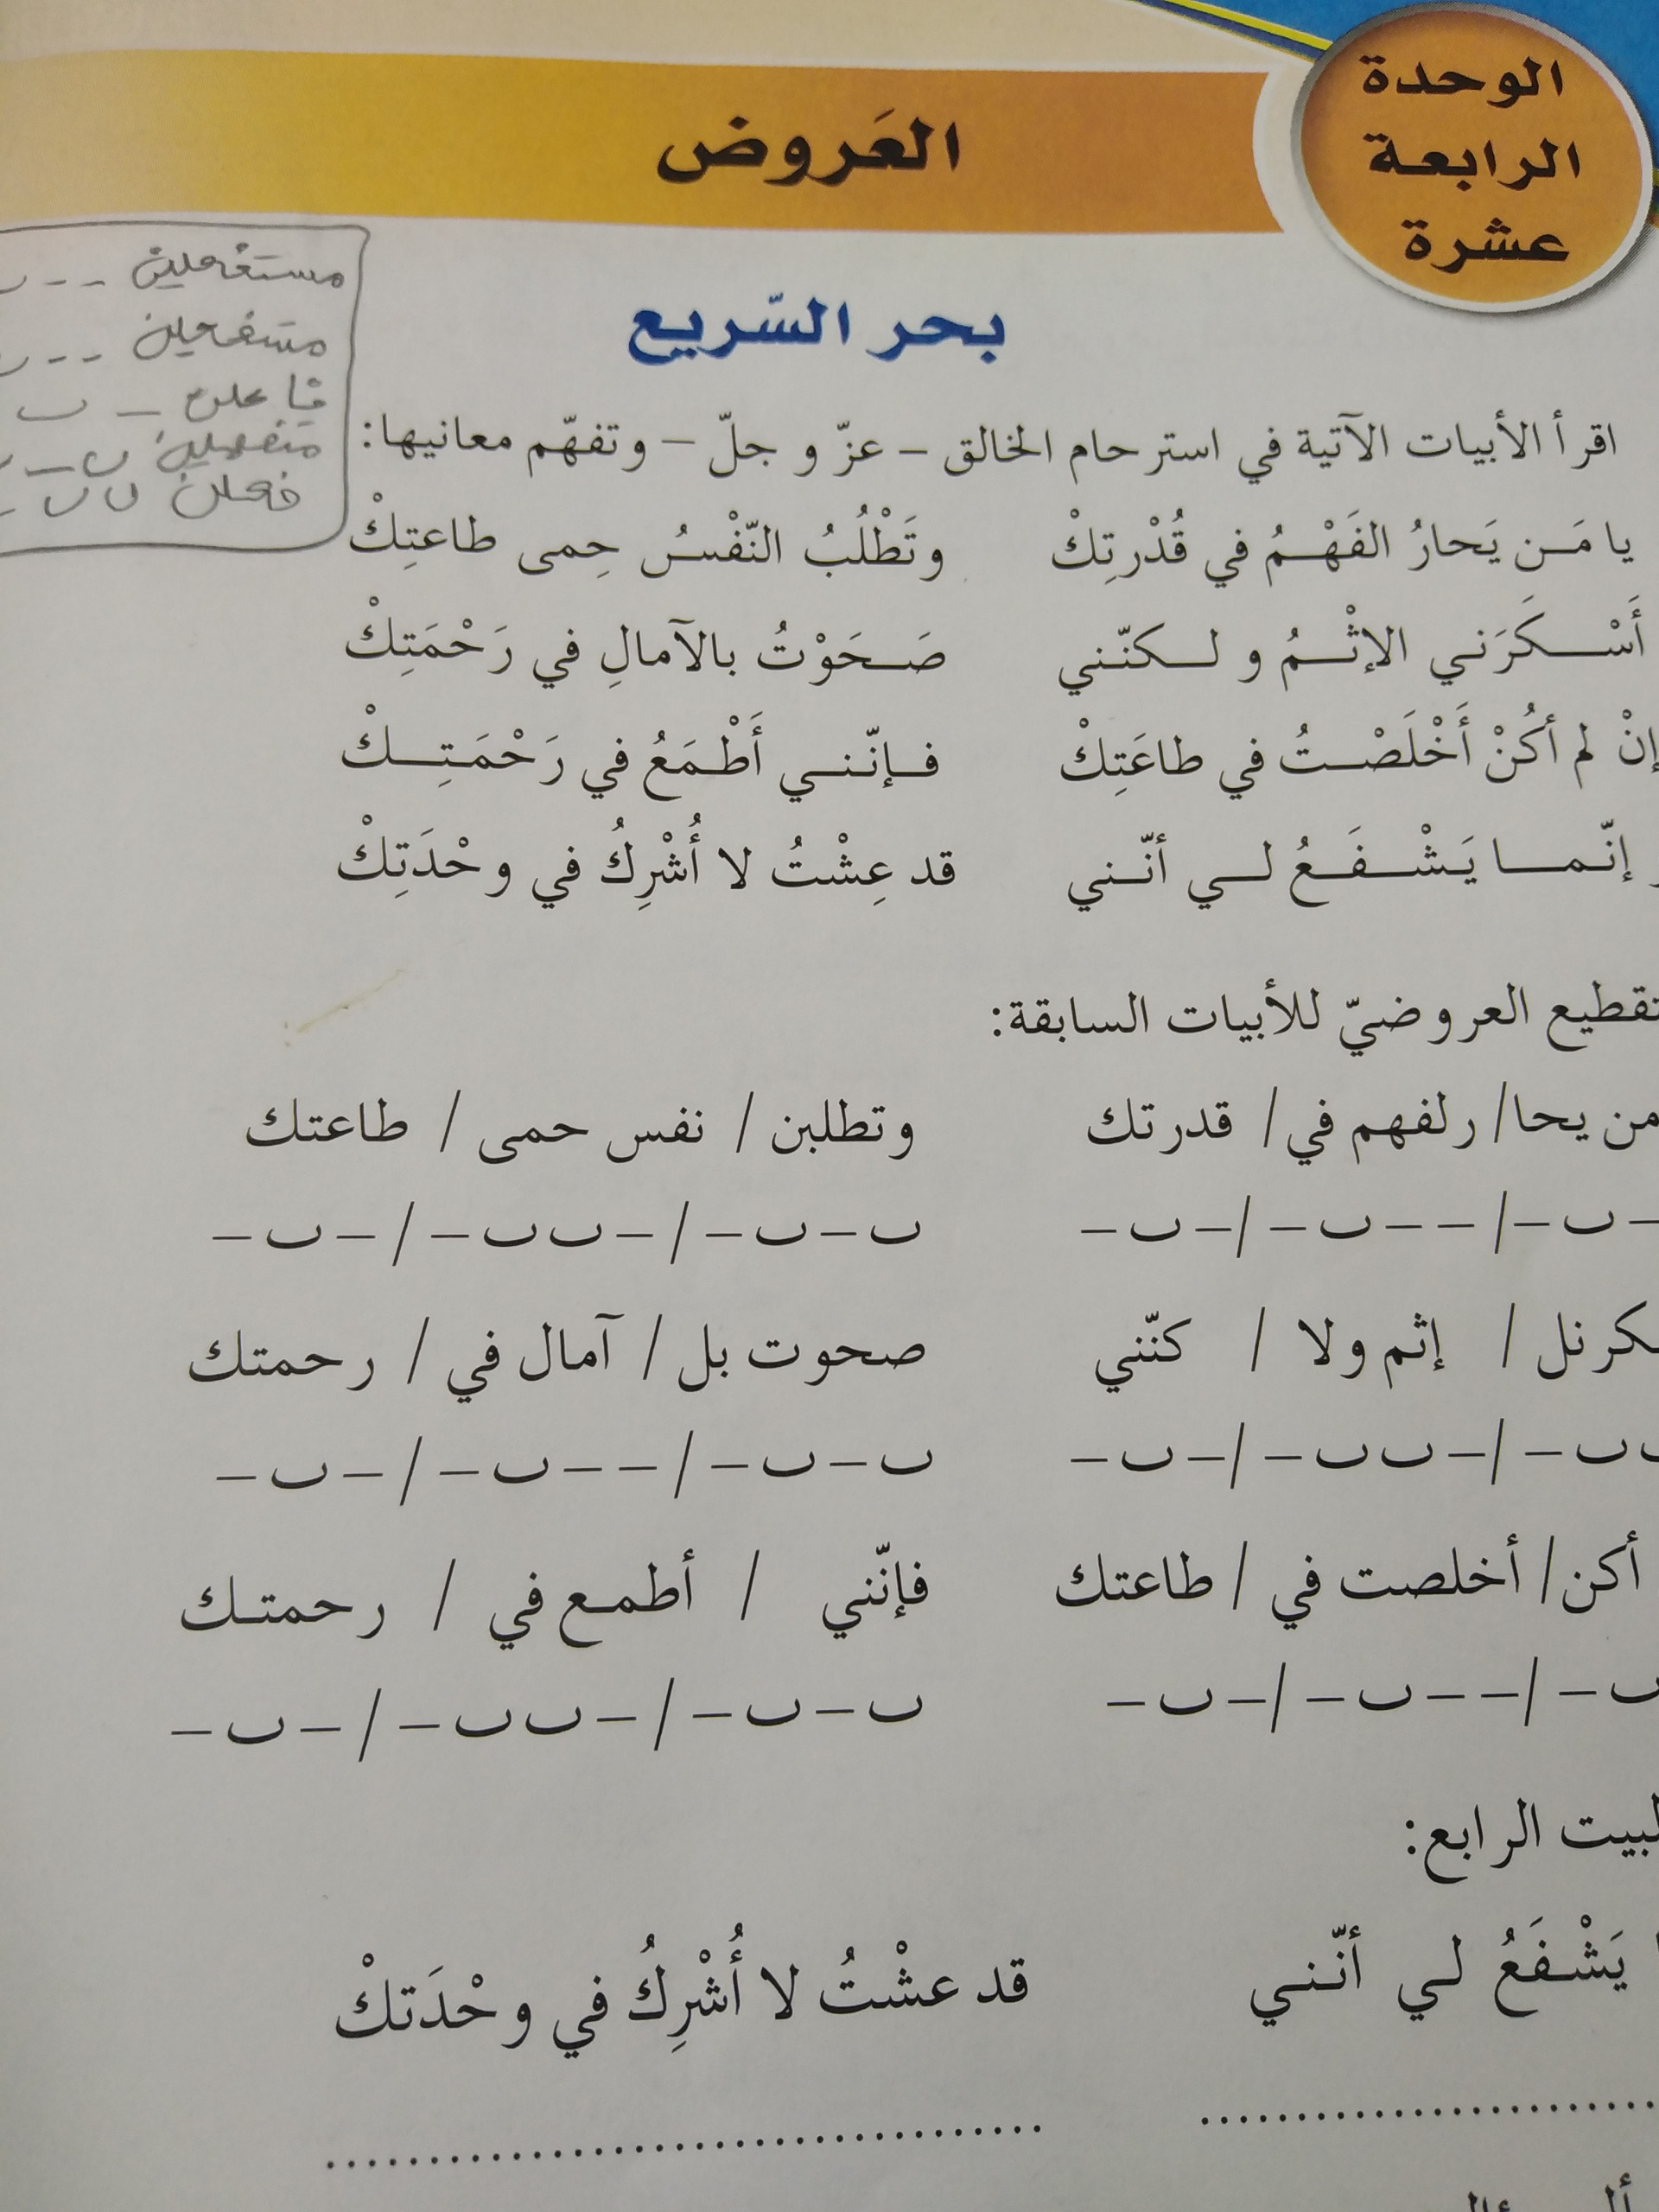 الوحدة
الرابعة
عشرة
العَروض
بحر السّريع
مستفعلن - - ں
مستفعلن - - ں
فاعلن - ں
متفعلن ں - ں
فعلن ں ں -
اقرأ الأبيات الآتية في استرحام الخالق – عزّ و جلّ – وتفهّم معانيها:
يا مَن يَحارُ الفَهْمُ في قُدْرتِكْ وتَطْلُبُ النّفْسُ حِمى طاعتِكْ
أَسْكَرَني الإثْمُ و لكنّني صَحَوْتُ بالآمالِ في رَحْمَتِكْ
إنْ لم أكُنْ أَخْلَصْتُ في طاعَتِكْ فإنّني أَطْمَعُ في رَحْمَتِكْ
إنّما يَشْفَعُ لي أنّني قد عِشْتُ لا أُشْرِكُ في وحْدَتِكْ
تقطيع العروضيّ للأبيات السابقة:
من يحا/ رلفهم في/ قدرتك وتطلبن / نفس حمى / طاعتك
– ں –/ – – ں –/ – ں – ں – ں –/ – ں ں –/ – ں –
كرنل / إثم ولا / كنّني صحوت بل / آمال في / رحمتك
ں ں –/ – ں ں –/ – ں – ں – ں –/ – – ں –/ – ں –
أكن/ أخلصت في / طاعتك فإنّني / أطمع في / رحمتك
ں –/ – – ں –/ – ں – ں – ں –/ – ں ں –/ – ں –
لبيت الرابع:
يَشْفَعُ لي أنّني قد عشْتُ لا أُشْرِكُ في وحْدَتكْ